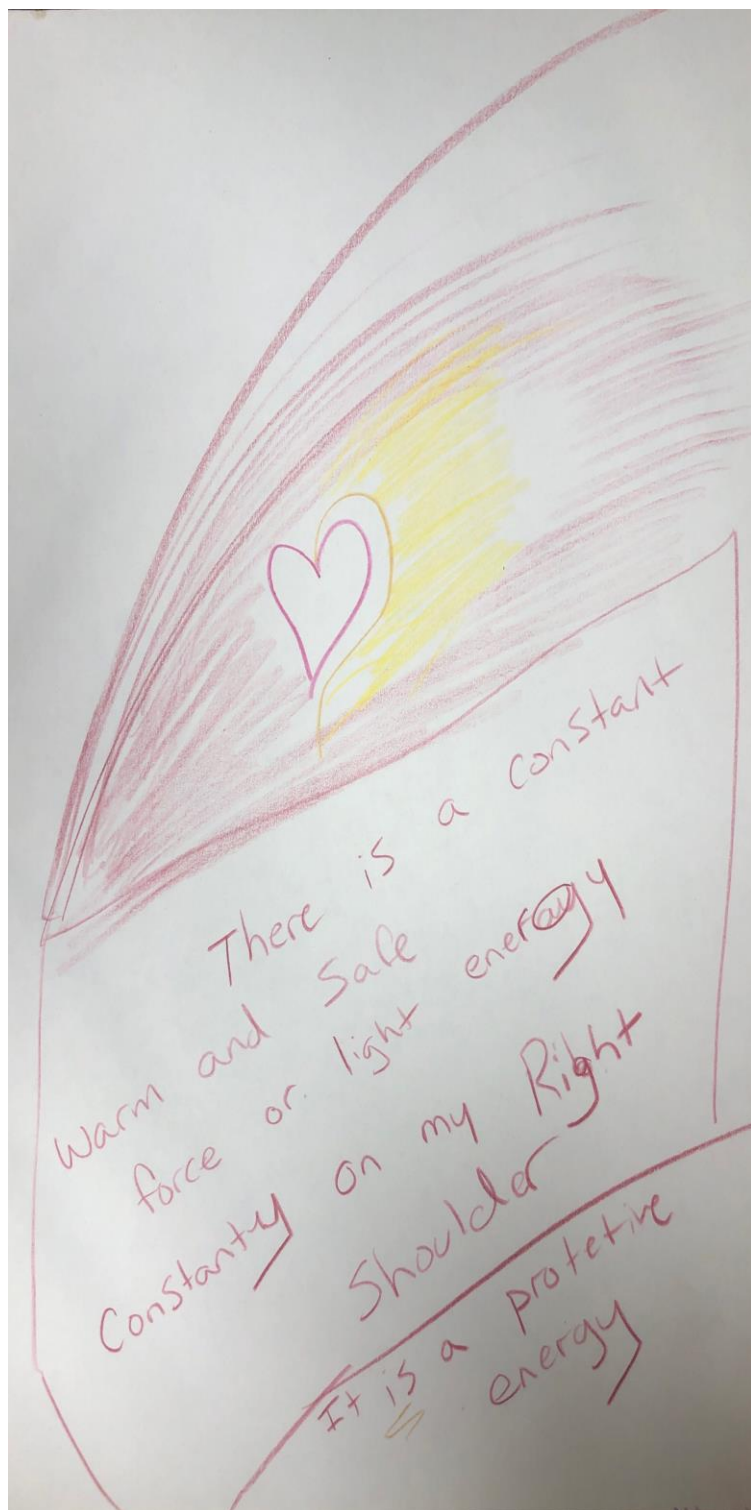 There is a constant
Warm and Safe
force or light energy
Constanty on my Right
Shoulder
It is a protetive
energy